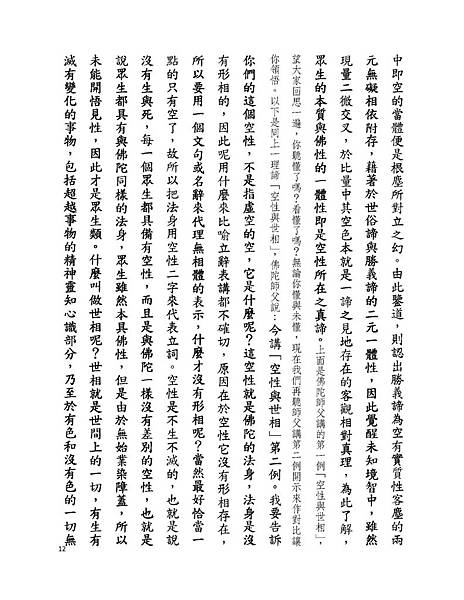 中即空的當體便是根塵所對立之幻。由此鑒道，則認出勝義諦為空有實質性客塵的兩
元無礙相依附存，藉著於世俗諦與勝義諦的二元一體性，因此覺醒未知境智中，雖然
現量二微交叉，於比量中其空色本就是一諦之見地存在的客觀相對真理，為此了解，
眾生的本質與佛性的一體性即是空性所在之真諦。上面是佛陀師父講的第一例「空性與世相」，
望大家回思一遍，你聽懂了嗎？看懂了嗎？無論你懂與未懂，現在我們再聽師父講第二例開示來作對比讓
你領悟。以下是阿上一理諦「空性與世相」，佛陀師父說：今講「空性與世相」第二例。我要告訴
你們的這個空性，不是指虛空的空，它是什麼呢？這空性就是佛陀的法身，法身是沒
有形相的，因此呢用什麼來比喻立辭表講都不確切，原因在於空性它沒有形相存在，
所以要用一個文句或名辭來代理無相體的表示，什麼才沒有形相呢？當然最好恰當一
點的只有空了，故所以把法身用空性二字來代表立詞。空性是不生不滅的，也就是說
沒有生與死，每一個眾生都具備有空性，而且是與佛陀一樣沒有差別的空性，也就是
說眾生都具有與佛陀同樣的法身，眾生雖然本具佛性，但是由於無始業染障蓋，所以
未能開悟見性，因此才是眾生類。什麼叫做世相呢？世相就是世間上的一切，有生有
滅有變化的事物，包括超越事物的精神靈知心識部分，乃至於有色和沒有色的一切無
12